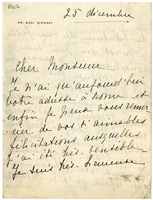 25 décembre
Cher Monsieur
Je n'ai qu'aujourd'hui
votre adresse à Rome et
enfin je peux vous remer-
cier de vos si aimables
félicitations auxquelles
j'ai été très sensible.
Je suis très heureuse